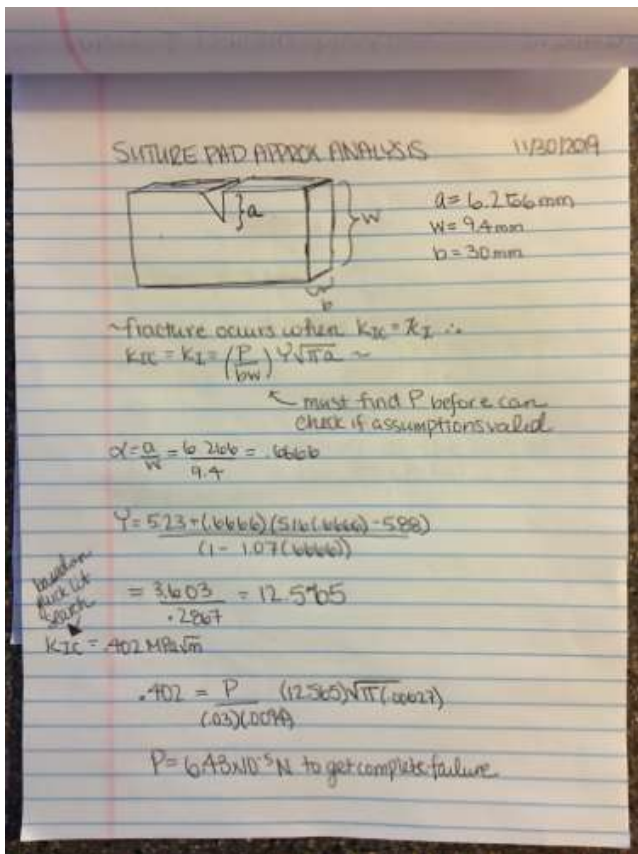 SUTURE PAD APPROX ANALYSIS 11/30/2019
}a
}w
b
a = 6.266mm
w = 9.4mm
b = 30mm
~fracture occurs when KIC = KI ∴
KIC = KI = (P/bw) Y√πa ~
must find P before can
check if assumptions valid
α = a/w = 6.266/9.4 = .6666
Y = 5.23 + (.6666)(5.16(.6666) - 5.88)
(1 - 1.07(.6666))
= 3.603/.2867 = 12.565
based on
quick lit
search
KIC = .402 MPa√m
.402 = P (12.565)√π(.00627)
(.03)(.0094)
P = 6.43x10⁻⁵N to get complete failure